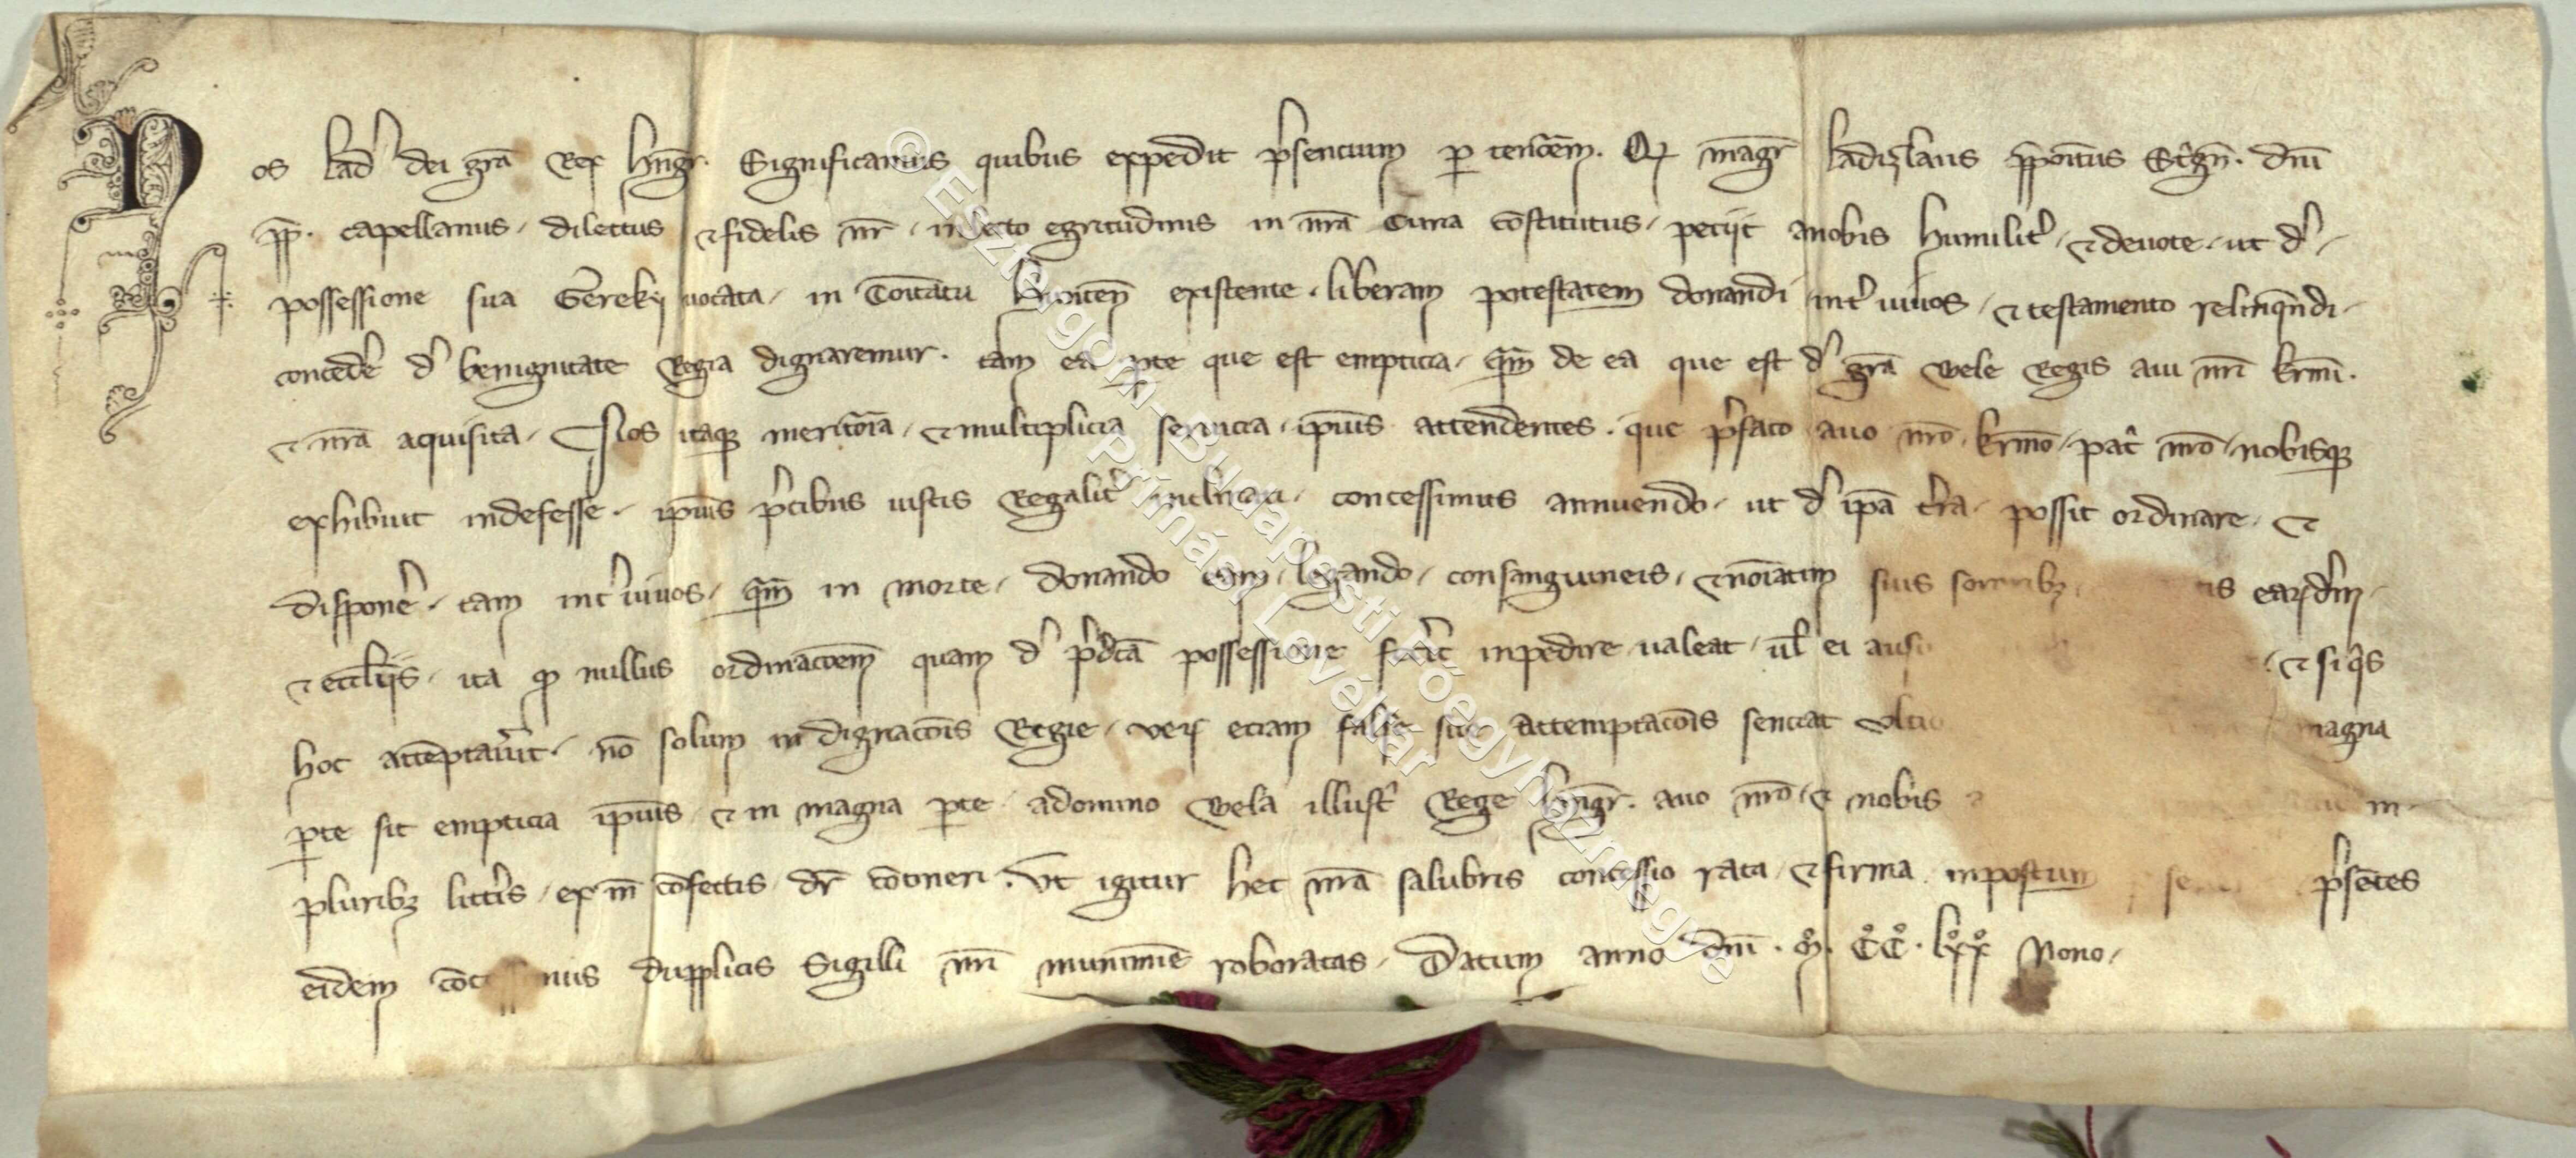 Nos Lad' dei grã Rex hungr̃. Significamus quibus expedit p'sencium per tenorẽm. Qꝫ mãgr̃ ladizlaus p̃poitus Str̃gñ. dnĩ
pp̃. capellanus, dilectus ⁊ fidelis nr̃, in lecto egritudinis in nrã Curia cõstitutus, petijt anobis humilit', ⁊ deuote, ut d'
possessione sua Gereky uocata, in Comitatu existente, liberam potestatem donandi int' uiuos, ⁊ testamento relinqũndi,
conced'e d' benignitate Regia dignaremur. tam ea parte que est empticia, quam de ea que est d' grã Bele Regis aui nrĩ krmĩ.
⁊ nrã aquisita. Nos itaqꝫ meritoria, ⁊ multiplicia seruicia ipius attendentes, que p'fato auo nrõ krmõ, pat' nrõ, nobisqꝫ
exhibuit indefesse, ipius p'cibus iustis Regalit' inclinati, concessimus annuendo, ut d' ipã t'ra possit ordinare, ⁊
dispon'e, tam int' uiuos, quam in morte, donando eam, legando, consanguineis, ⁊ noiatim suis sororibꝫ, earũdm,
⁊ eccl'ijs, ita qꝫ nullus ordinacõem quam d' p'dcã possessione fec'it inpedire ualeat, ul' ei ⁊ si qⁱs
hoc attẽptau'it, nõ solum indignacõis Regie, uerꝫ etiam false sue attemptacõis senciat magna
parte sit empticia ipius, ⁊ in magna parte adomino Bela illust' Rege hungr̃. auo nrõ, ⁊ nobis in
pluribꝫ litt'is, ex in cõfectis, dr̃ cõtineri. Vt igitur hec nrã salubris concessio rata, ⁊ firma inpostum p'sẽtes
eidem cõcessimus dupplicis Sigilli nrĩ munimine roboratas. Datum anno dnĩ. M̊. C̊C̊. Lx̊x̊ Nono.
© Esztergom-Budapesti Főegyházmegye
Prímási Levéltár